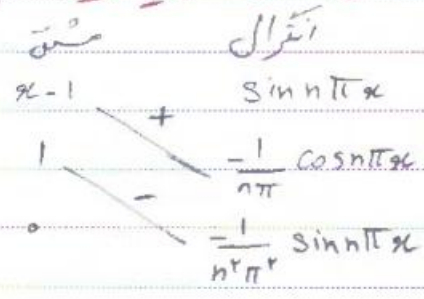 مشتق انتگرال
x-1 sin nπx
+
1 -1/nπ cos nπx
-
۰ -1/n²π² sin nπx